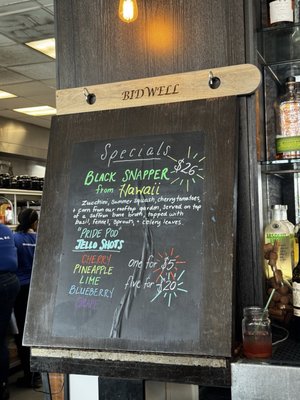 BIDWELL
Specials
BLACK SNAPPER $26
from Hawaii
Zucchini, Summer Squash, cherry tomatoes,
+ corn from our rooftop garden, served on top
of a saffron bone broth, topped with
basil, fennel, sprouts, + celery leaves
"PRIDE POD"
JELLO SHOTS
CHERRY
PINEAPPLE
LIME
BLUEBERRY
one for $5
five for $20